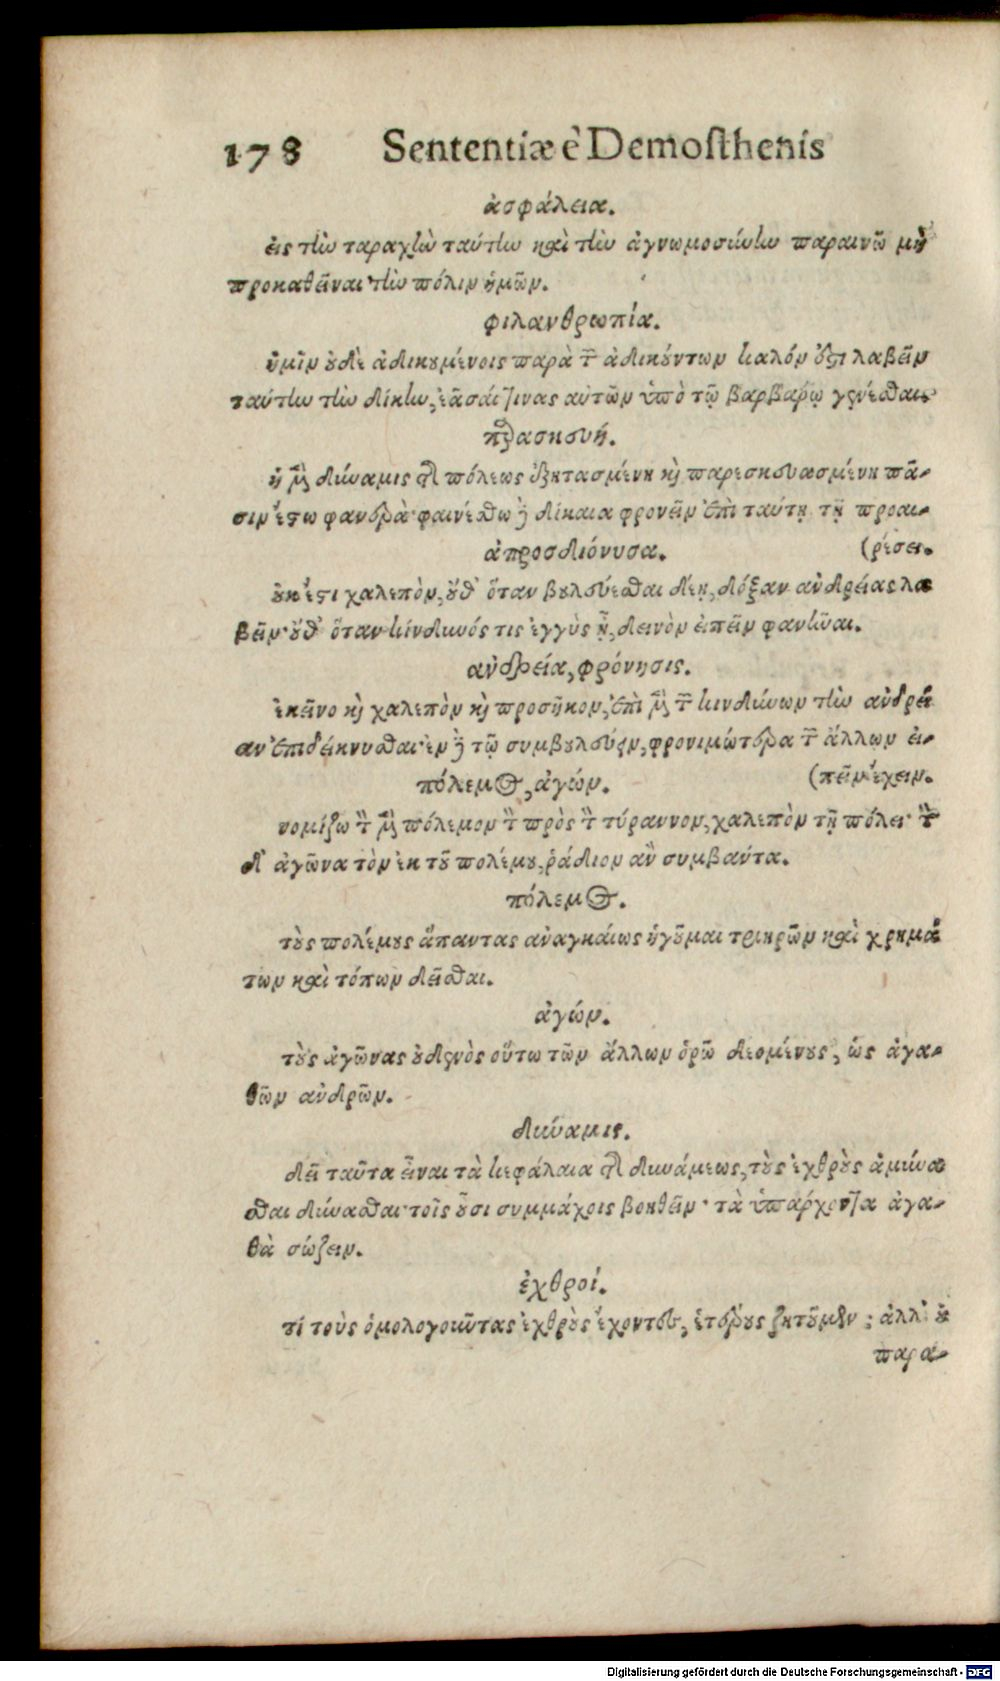 178 Sententiæ è Demosthenis
ἀσφάλεια.
εἰς τὴν ταραχὴν ταύτην καὶ τὴν ἀγνωμοσύνην παραινῶ μὴ
προκαθεῖναι τὴν πόλιν ἡμῶν.
φιλανθρωπία.
ὑμῖν οὐδὲ ἀδικουμένοις παρὰ τῶν ἀδικούντων καλόν ἐστι λαβεῖν
ταύτην τὴν δίκην, ἐᾶσαί τινας αὐτῶν ὑπὸ τῷ βαρβάρῳ γενέσθαι.
παρασκευή.
ἡ μὲν δύναμις τῆς πόλεως ἐξητασμένη καὶ παρεσκευασμένη πᾶ-
σιν ἔστω φανερά· φαινέσθω δὲ δίκαια φρονεῖν ἐπὶ ταύτῃ τῇ προαι-
ἀπροσδιόνυσα. (ρέσει.
οὐκ ἔστι χαλεπὸν, οὔθ' ὅταν βουλεύεσθαι δέῃ, δόξαν ἀνδρείας λα
βεῖν· οὔθ' ὅταν κίνδυνός τις ἐγγὺς ᾖ, δεινὸν εἰπεῖν φανῆναι.
ἀνδρεία, φρόνησις.
ἐκεῖνο καὶ χαλεπὸν καὶ προσῆκον, ἐπὶ μὲν τῶν κινδύνων τὴν ἀνδρεί
αν ἐπιδείκνυσθαι· ἐν δὲ τῷ συμβουλεύειν, φρονιμώτερα τῶν ἄλλων εἰ-
πόλεμος, ἀγών. (πεῖν ἔχειν.
νομίζω τὸν μὲν πόλεμον τὸν πρὸς τὸν τύραννον, χαλεπὸν τῇ πόλει· τὸν
δ' ἀγῶνα τὸν ἐκ τοῦ πολέμου, ῥάδιον ἂν συμβάντα.
πόλεμος.
τοὺς πολέμους ἅπαντας ἀναγκαίως ἡγοῦμαι τριηρῶν καὶ χρημά
των καὶ τόπων δεῖσθαι.
ἀγών.
τοὺς ἀγῶνας οὐδενὸς οὕτω τῶν ἄλλων ὁρῶ δεομένους, ὡς ἀγα-
θῶν ἀνδρῶν.
δύναμις.
δεῖ ταῦτα εἶναι τὰ κεφάλαια τῆς δυνάμεως, τοὺς ἐχθροὺς ἀμύνα
σθαι δύνασθαι· τοῖς οὖσι συμμάχοις βοηθεῖν· τὰ ὑπάρχοντα ἀγα-
θὰ σώζειν.
ἐχθροί.
τί τοὺς ὁμολογοῦντας ἐχθροὺς ἔχοντες, ἑτέρους ζητοῦμεν; ἀλλ' οὐ
παρα-
Digitalisierung gefördert durch die Deutsche Forschungsgemeinschaft - DFG